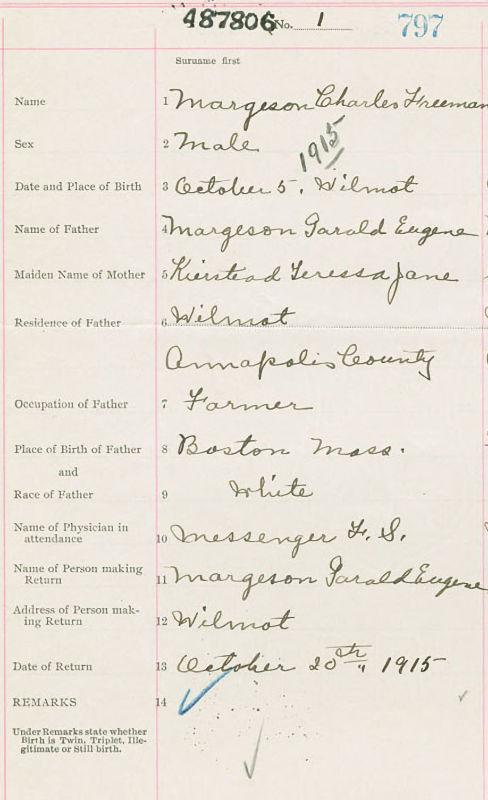 487806 No. 1 797
Surname first
Name 1 Margeson Charles Freeman
Sex 2 Male
1915
Date and Place of Birth 3 October 5, Wilmot
Name of Father 4 Margeson Garald Eugene
Maiden Name of Mother 5 Kierstead Teressa Jane
Residence of Father 6 Wilmot
Annapolis County
Occupation of Father 7 Farmer
Place of Birth of Father 8 Boston Mass.
and
Race of Father 9 White
Name of Physician in
attendance 10 Messenger F. S.
Name of Person making
Return 11 Margeson Garald Eugene
Address of Person mak-
ing Return 12 Wilmot
Date of Return 13 October 20th, 1915
REMARKS 14
Under Remarks state whether
Birth is Twin, Triplet, Ille-
gitimate or Still birth.